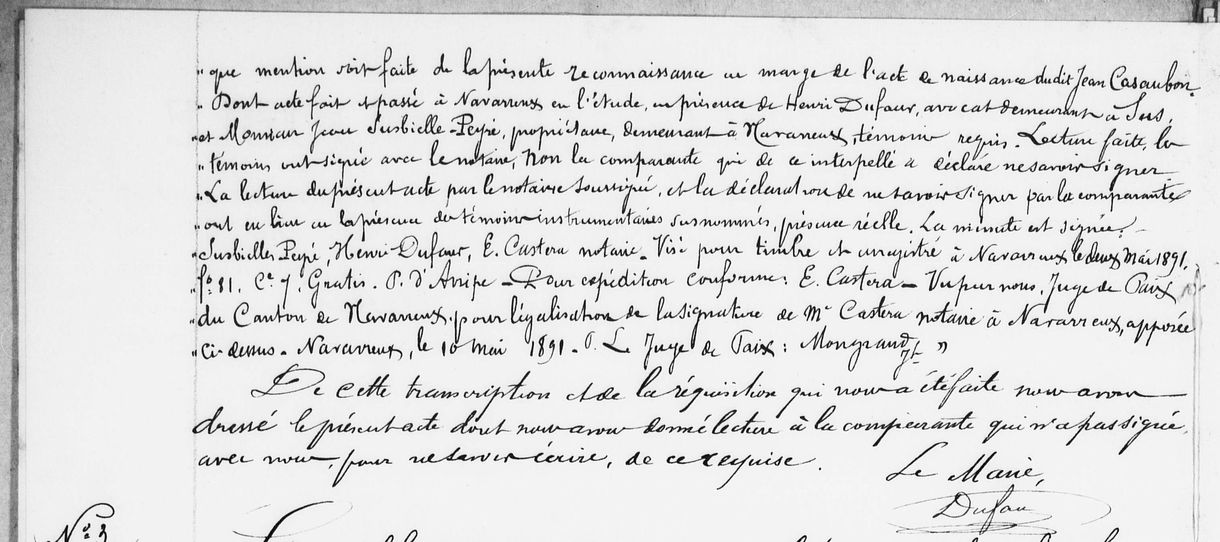 " que mention soit faite de la présente reconnaissance en marge de l'acte de naissance dudit Jean Casaubon.
" Dont acte fait et passé à Navarrenx en l'étude, en présence de Henri Dufaur, avocat demeurant à Sus,
" et Monsieur Jean Susbielle-Peyré, propriétaire, demeurant à Navarrenx, témoins requis. Lecture faite, les
" témoins ont signé avec le notaire, Non la comparante qui de ce interpellé a déclaré ne savoir signer
" La lecture du présent acte par le notaire soussigné, et la déclaration de ne savoir signer par la comparante
" ont eu lieu en la présence des témoins instrumentaires susnommés, présence réelle. La minute est signée.
" Susbielles Peyré, Henri Dufaur, E. Castera notaire. Visé pour timbre et enregistré à Navarrenx le deux Mai 1891.
" fo 81. Ce 7. Gratis. P. d'Arripe - Pour expédition conforme: E. Castera - Vu par nous, Juge de Paix
" du Canton de Navarrenx, pour légalisation de la signature de Me Castera notaire à Navarrenx, apposée
" Ci-dessus. Navarrenx, le 10 Mai 1891. P. Le Juge de Paix: Mongrand "
De cette transcription et de la réquisition qui nous a été faite nous avons
dressé le présent acte dont nous avons donné lecture à la comparante qui n'a pas signée,
avec nous, pour ne savoir écrire, de ce requise.
Le Maire,
Dufau
No 3